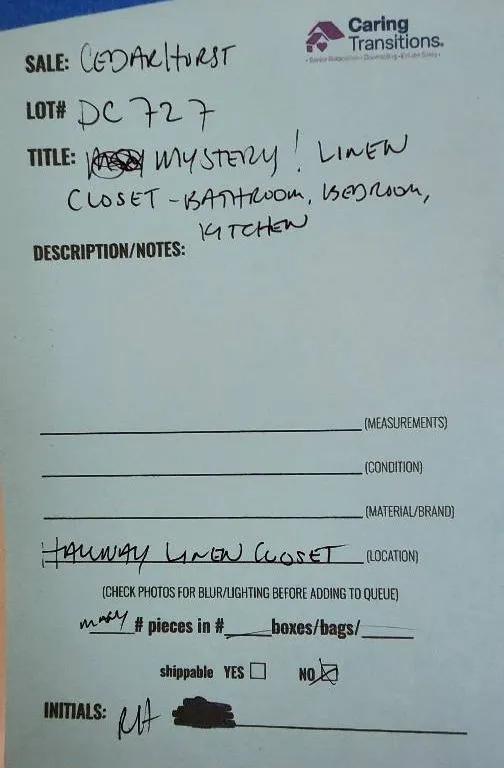 Caring
Transitions.
SALE: CEDARHURST
LOT# DC727
TITLE: MYSTERY! LINEN
CLOSET - BATHROOM, BEDROOM,
KITCHEN
DESCRIPTION/NOTES:
(MEASUREMENTS)
(CONDITION)
(MATERIAL/BRAND)
HALLWAY LINEN CLOSET (LOCATION)
(CHECK PHOTOS FOR BLUR/LIGHTING BEFORE ADDING TO QUEUE)
many # pieces in # boxes/bags/
shippable YES NO
INITIALS: RH